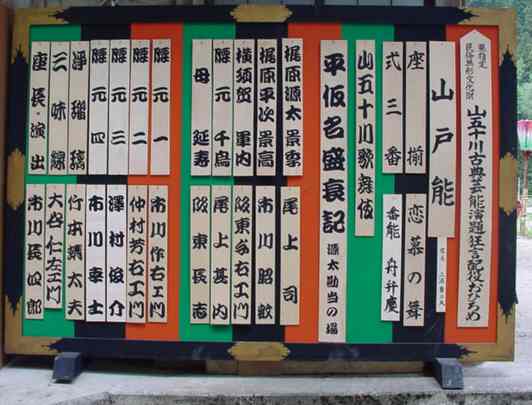 県指定
民俗無形文化財
山五十川古典芸能演題狂言配役おひろめ
山戸能
座揃
恋慕の舞
式三番
番能 舟弁慶
山五十川歌舞伎
平仮名盛衰記
源太勘当の場
梶原源太景季
尾上司
梶原平次景高
市川昭歓
横須賀軍内
坂東多右エ門
腰元千鳥
尾上甚内
母延寿
坂東長志
腰元一
市川作右エ門
腰元二
仲村芳右エ門
腰元三
澤村俊介
腰元四
市川幸士
浄瑠璃
竹本鏋太夫
三味線
大谷仁左エ門
座長・演出
市川長四郎